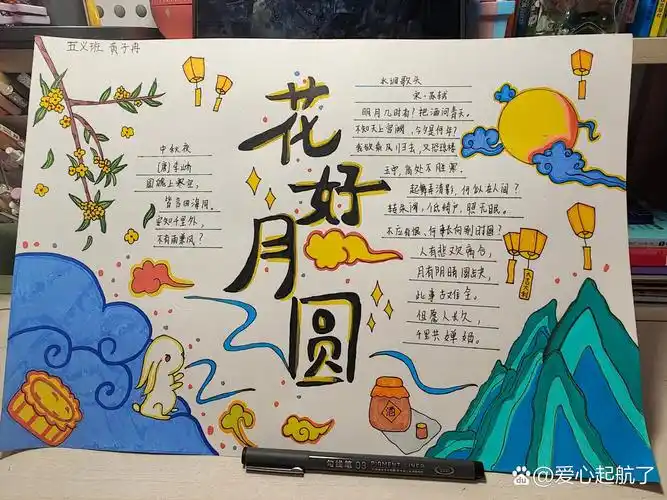 五义班
中秋夜
[唐]李峤
圆魄上寒空,
皆言四海同。
安知千里外,
不有雨兼风?
花好月圆
水调歌头
宋·苏轼
明月几时有?把酒问青天。
不知天上宫阙,今夕是何年?
我欲乘风归去,又恐琼楼
玉宇,高处不胜寒。
起舞弄清影,何似在人间?
转朱阁,低绮户,照无眠。
不应有恨,何事长向别时圆?
人有悲欢离合,
月有阴晴圆缺,
此事古难全。
但愿人长久,
千里共婵娟。
酒
勾线笔 03 PIGMENT LINER
@爱心起航了